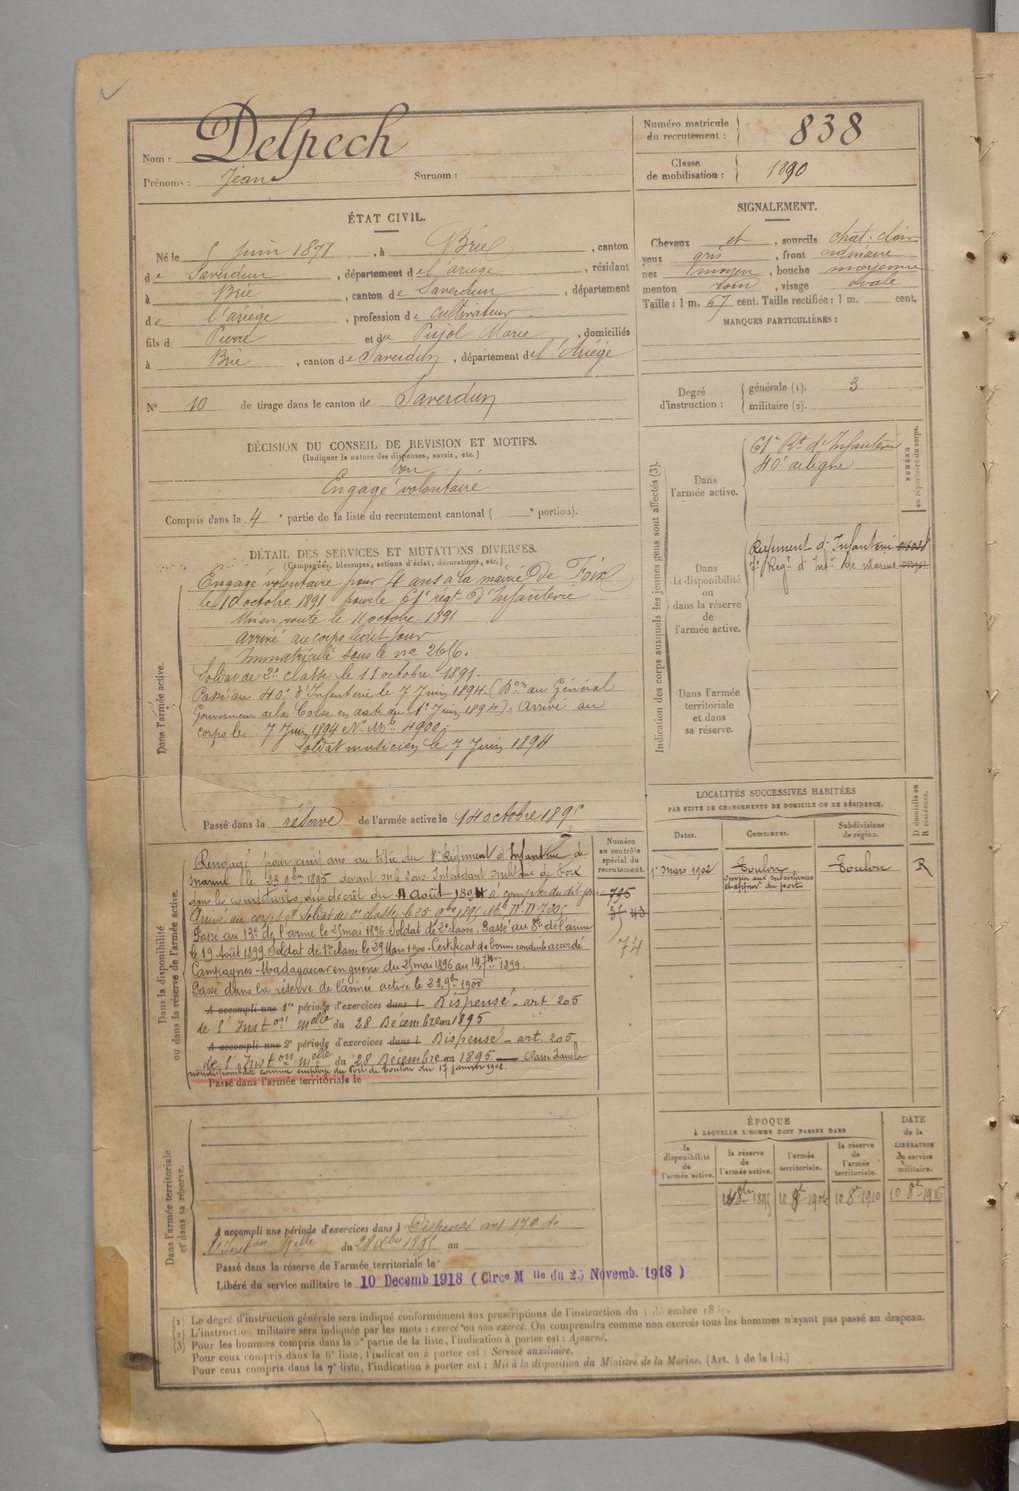 Nom : Delpech
Prénoms : Jean Surnom :
Numéro matricule
du recrutement : 838
Classe
de mobilisation : 1890
ÉTAT CIVIL.
Né le 5 Juin 1871, à Brie, canton
de Saverdun, département de l'ariège, résidant
à Brie, canton de Saverdun, département
de l'ariège, profession de cultivateur
fils d Pierre et de Pujol Marie, domiciliés
à Brie, canton de Saverdun, département de l'Ariège
N° 10 de tirage dans le canton de Saverdun
SIGNALEMENT.
Cheveux et, sourcils chat. clair
yeux gris, front ordinaire
nez moyen, bouche moyenne
menton rond, visage ovale
Taille : 1 m. 67 cent. Taille rectifiée : 1 m. cent.
MARQUES PARTICULIÈRES :
Degré
d'instruction :
générale (1). 3
militaire (2).
DÉCISION DU CONSEIL DE REVISION ET MOTIFS.
(Indiquer la nature des dispenses, sursis, etc.)
bon
Engagé volontaire
Compris dans la 4e partie de la liste du recrutement cantonal ( e portion).
DÉTAIL DES SERVICES ET MUTATIONS DIVERSES.
(Campagnes, blessures, actions d'éclat, décorations, etc.)
Dans l'armée active.
Engagé volontaire pour 4 ans à la mairie de Foix
le 10 octobre 1891 pour le 61e régt d'Infanterie
Mis en route le 11 octobre 1891
Arrivé au corps le dit jour
Immatriculé sous le no 2656.
Soldat de 2e classe le 11 octobre 1891.
Passé au 40e d'Infanterie le 7 Juin 1894. (Don au Général
Gouverneur de la Corse en date du 1er Juin 1894). Arrivé au
corps le 7 Juin 1894 No Mle 4900.
Soldat musicien le 7 Juin 1894
Passé dans la réserve de l'armée active le 14 octobre 1895
Dans la disponibilité
ou dans la réserve de l'armée active.
Rengagé pour cinq ans au titre du 8e Régiment d'Infanterie de
marine le 23 9bre 1895 devant le Sous Intendant militaire de Foix
dans les conditions du décret du 4 Août 1894 à compter du dit jour
Arrivé au corps et Soldat de 2e classe le 25 9bre 1895
Passé au 13e de l'arme le 25 mai 1896. Soldat de 2e classe. Passé au 8e de l'arme
le 19 Août 1899. Soldat de 1re classe le 29 Mars 1900. Certificat de bonne conduite accordé
Campagnes - Madagascar en guerre du 25 mai 1896 au 14 7bre 1899.
Passé dans la réserve de l'armée active le 23 9bre 1900
A accompli une 1re période d'exercices dans l Dispensé - art. 205
de l'Inston melle du 28 Décembre 1895
A accompli une 2e période d'exercices dans l Dispensé - art. 205
de l'Inston melle du 28 Décembre 1895 — Classé dans la
non disponibilité comme employé du Port de Toulon du 17 janvier 1902.
Passé dans l'armée territoriale le
Numéro
au contrôle
spécial du
recrutement.
795
74
Dans l'armée territoriale
et dans sa réserve.
A accompli une période d'exercices dans l Dispensé art 170 de
l'Inston Melle du 28 dbre 1895 au
Passé dans la réserve de l'armée territoriale le
Libéré du service militaire le 10 Decemb 1918 (Circe M lle du 25 Novemb. 1918)
Indication des corps auxquels les jeunes gens sont affectés (3).
Dans
l'armée active.
61e Rt d'Infanterie
40e de ligne
NUMÉRO
au répertoire du corps.
Dans
la disponibilité
ou
dans la réserve
de
l'armée active.
Régiment d'Infanterie
Régt d'Infie de marine
Dans l'armée
territoriale
et dans
sa réserve.
LOCALITÉS SUCCESSIVES HABITÉES
PAR SUITE DE CHANGEMENTS DE DOMICILE OU DE RÉSIDENCE.
Dates. Communes. Subdivisions
de région. D domicile ou
R résidence.
1er Mars 1902 Toulon Toulon R
ÉPOQUE
À LAQUELLE L'HOMME DOIT PASSER DANS
la
disponibilité
de
l'armée active.
la réserve
de
l'armée active.
l'armée
territoriale.
la réserve
de
l'armée
territoriale.
DATE
de la
LIBÉRATION
du service
militaire.
10 8bre 1910
(1) Le degré d'instruction générale sera indiqué conformément aux prescriptions de l'instruction du
(2) L'instruction militaire sera indiquée par les mots : exercé ou non exercé. On comprendra comme non exercés tous les hommes n'ayant pas passé au drapeau.
(3) Pour les hommes compris dans la 5e partie de la liste, l'indication à porter est : Ajourné.
Pour ceux compris dans la 6e liste, l'indication à porter est : Service auxiliaire.
Pour ceux compris dans la 7e liste, l'indication à porter est : Mis à la disposition du Ministre de la Marine. (Art. 4 de la loi.)